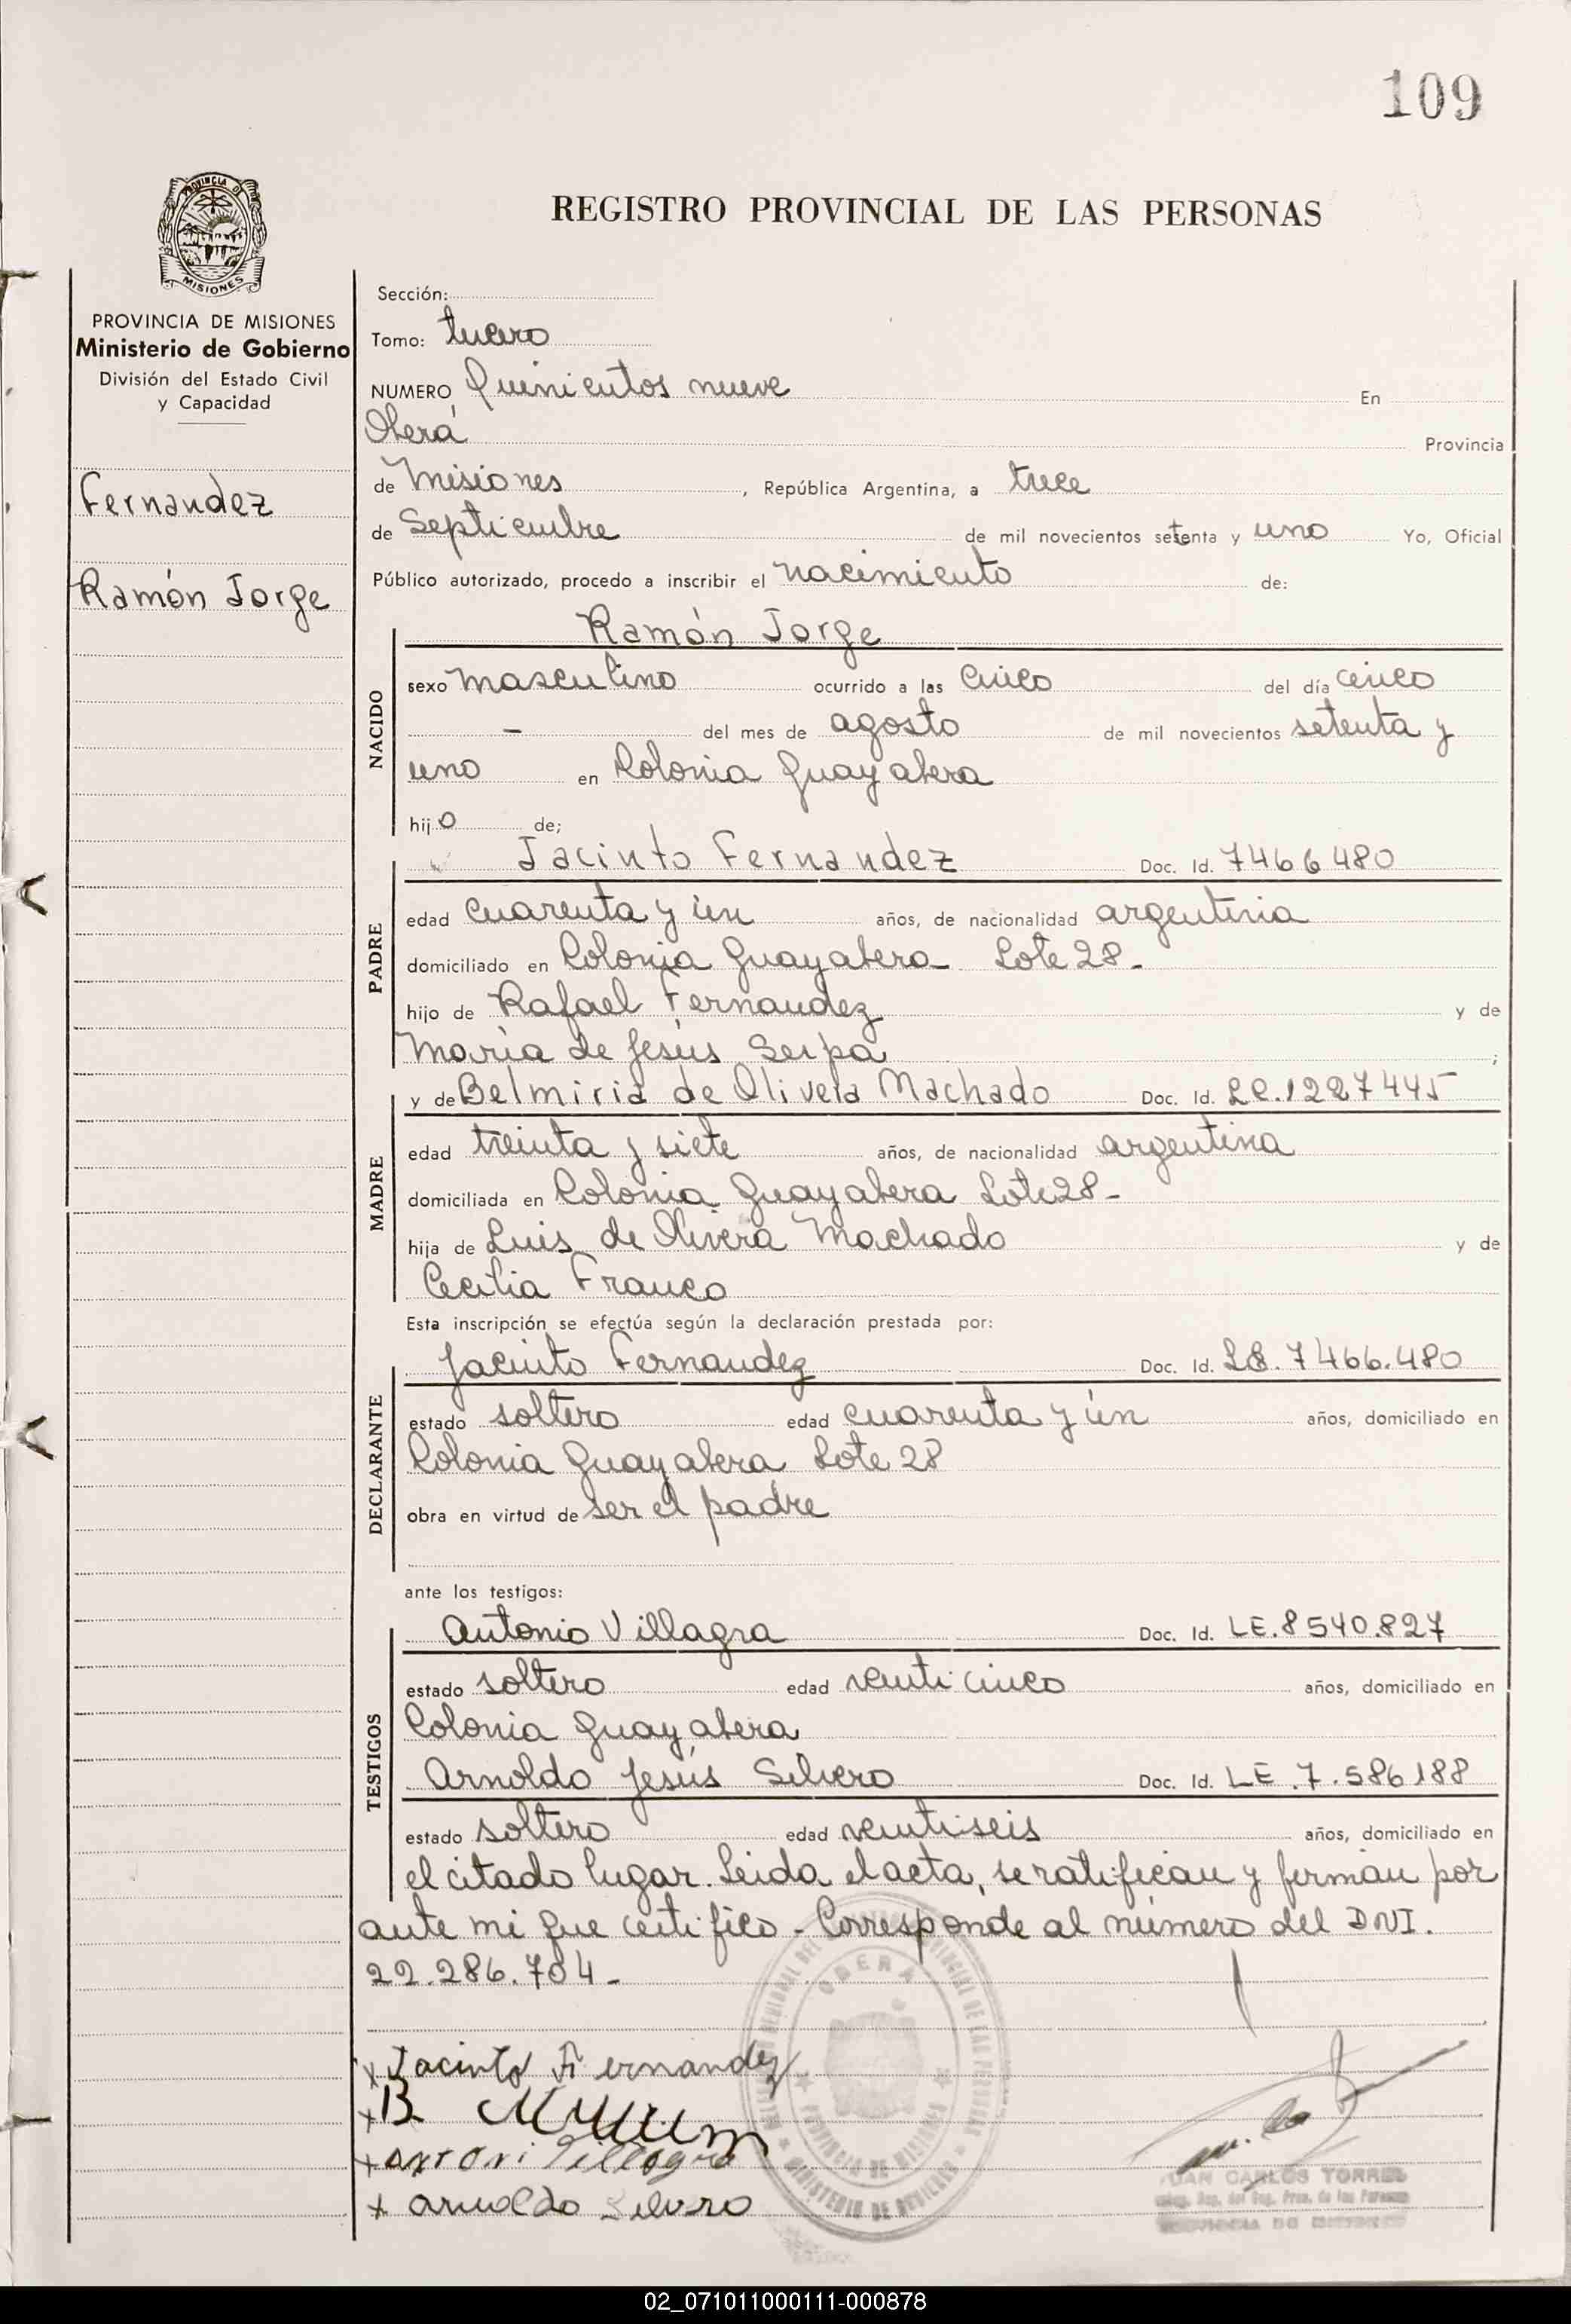 109
PROVINCIA DE
MISIONES
REGISTRO PROVINCIAL DE LAS PERSONAS
PROVINCIA DE MISIONES
Ministerio de Gobierno
División del Estado Civil
y Capacidad
Fernandez
Ramón Jorge
Sección:
Tomo: tercero
NUMERO, Quinientos nueve En
Oberá Provincia
de Misiones, República Argentina, a trece
de Septiembre de mil novecientos setenta y uno Yo, Oficial
Público autorizado, procedo a inscribir el nacimiento de:
Ramón Jorge
NACIDO
sexo masculino ocurrido a las cinco del día cinco
- del mes de agosto de mil novecientos setenta y
uno en Colonia Guayabera
hijo de;
PADRE
Jacinto Fernandez Doc. Id. 7466480
edad cuarenta y ún años, de nacionalidad argentina
domiciliado en Colonia Guayabera Lote 28-
hijo de Rafael Fernandez y de
María de Jesús Serpa ;
MADRE
y de Belmiria de Olivera Machado Doc. Id. LC.1227445
edad treinta y siete años, de nacionalidad argentina
domiciliada en Colonia Guayabera Lote 28-
hija de Luis de Olivera Machado y de
Cecilia Franco
Esta inscripción se efectúa según la declaración prestada por:
DECLARANTE
Jacinto Fernandez Doc. Id. LE.7466.480
estado soltero edad cuarenta y ún años, domiciliado en
Colonia Guayabera Lote 28
obra en virtud de ser el padre
ante los testigos:
TESTIGOS
Antonio Villagra Doc. Id. LE.8540.827
estado soltero edad venticinco años, domiciliado en
Colonia Guayabera
Arnoldo Jesús Silvero Doc. Id. LE.7.586188
estado soltero edad ventiseis años, domiciliado en
el citado lugar. Leida el acta, se ratifican y firman por
ante mi que certifico - Corresponde al número del DNI.
22.286.704-
OBERA
PROVINCIA DE MISIONES
x Jacinto Fernandez
x B
x antoni Villagra
x arnoldo Silvero
JUAN CARLOS TORRES
02_071011000111-000878